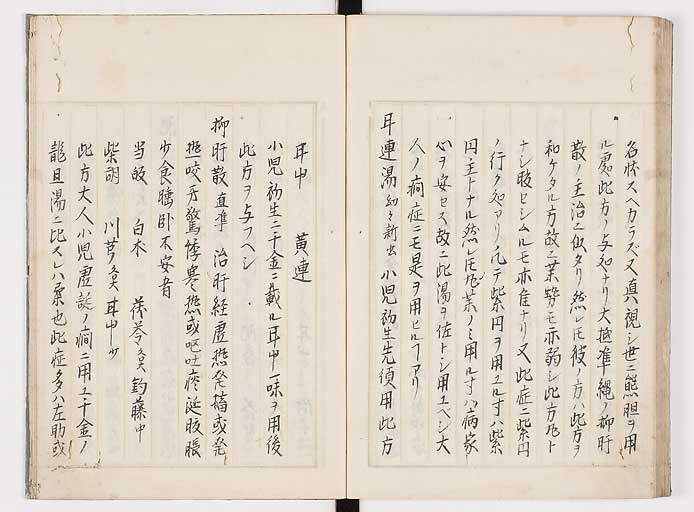 名状スヘカラズ又真視シ世ニ熊胆ヲ用
ル處此方ノ与ル処ナリ大抵準縄ノ抑肝
散ノ主治ニ似タリ然レ𪜈彼ノ方ハ此方ヲ
和ケタル方故ニ薬勢モ亦弱シ此方凡ト
ナシ肢セシムルモ亦隹ナリ又此症ニ紫円
ノ行ク処アリ凡テ紫円ヲ用ユル寸ハ紫
円主トナル然レ𪜈此薬ノミ用ル寸ハ病家
心ヲ安セス故ニ此湯ヲ佐トシ用ユベシ大
人ノ癇症ニモ是ヲ用ヒルヿアリ
耳連湯 小児初生先須用此方
耳中 黄連
小児初生ニ千金ニ載ル耳中一味ヲ用後
此方ヲ与フヘシ
抑肝散 直準 治肝経虚熱発搐或発
熱咬牙驚悸寒熱或嘔吐痰涎腹脹
少食睡卧不安者
当皈 白朮 茯苓 釣藤中
柴胡 川芎 耳中少
此方大人小児虚証ノ癇ニ用ユ千金ノ
龍旦湯ニ比スレハ緊也此症多ハ左助或